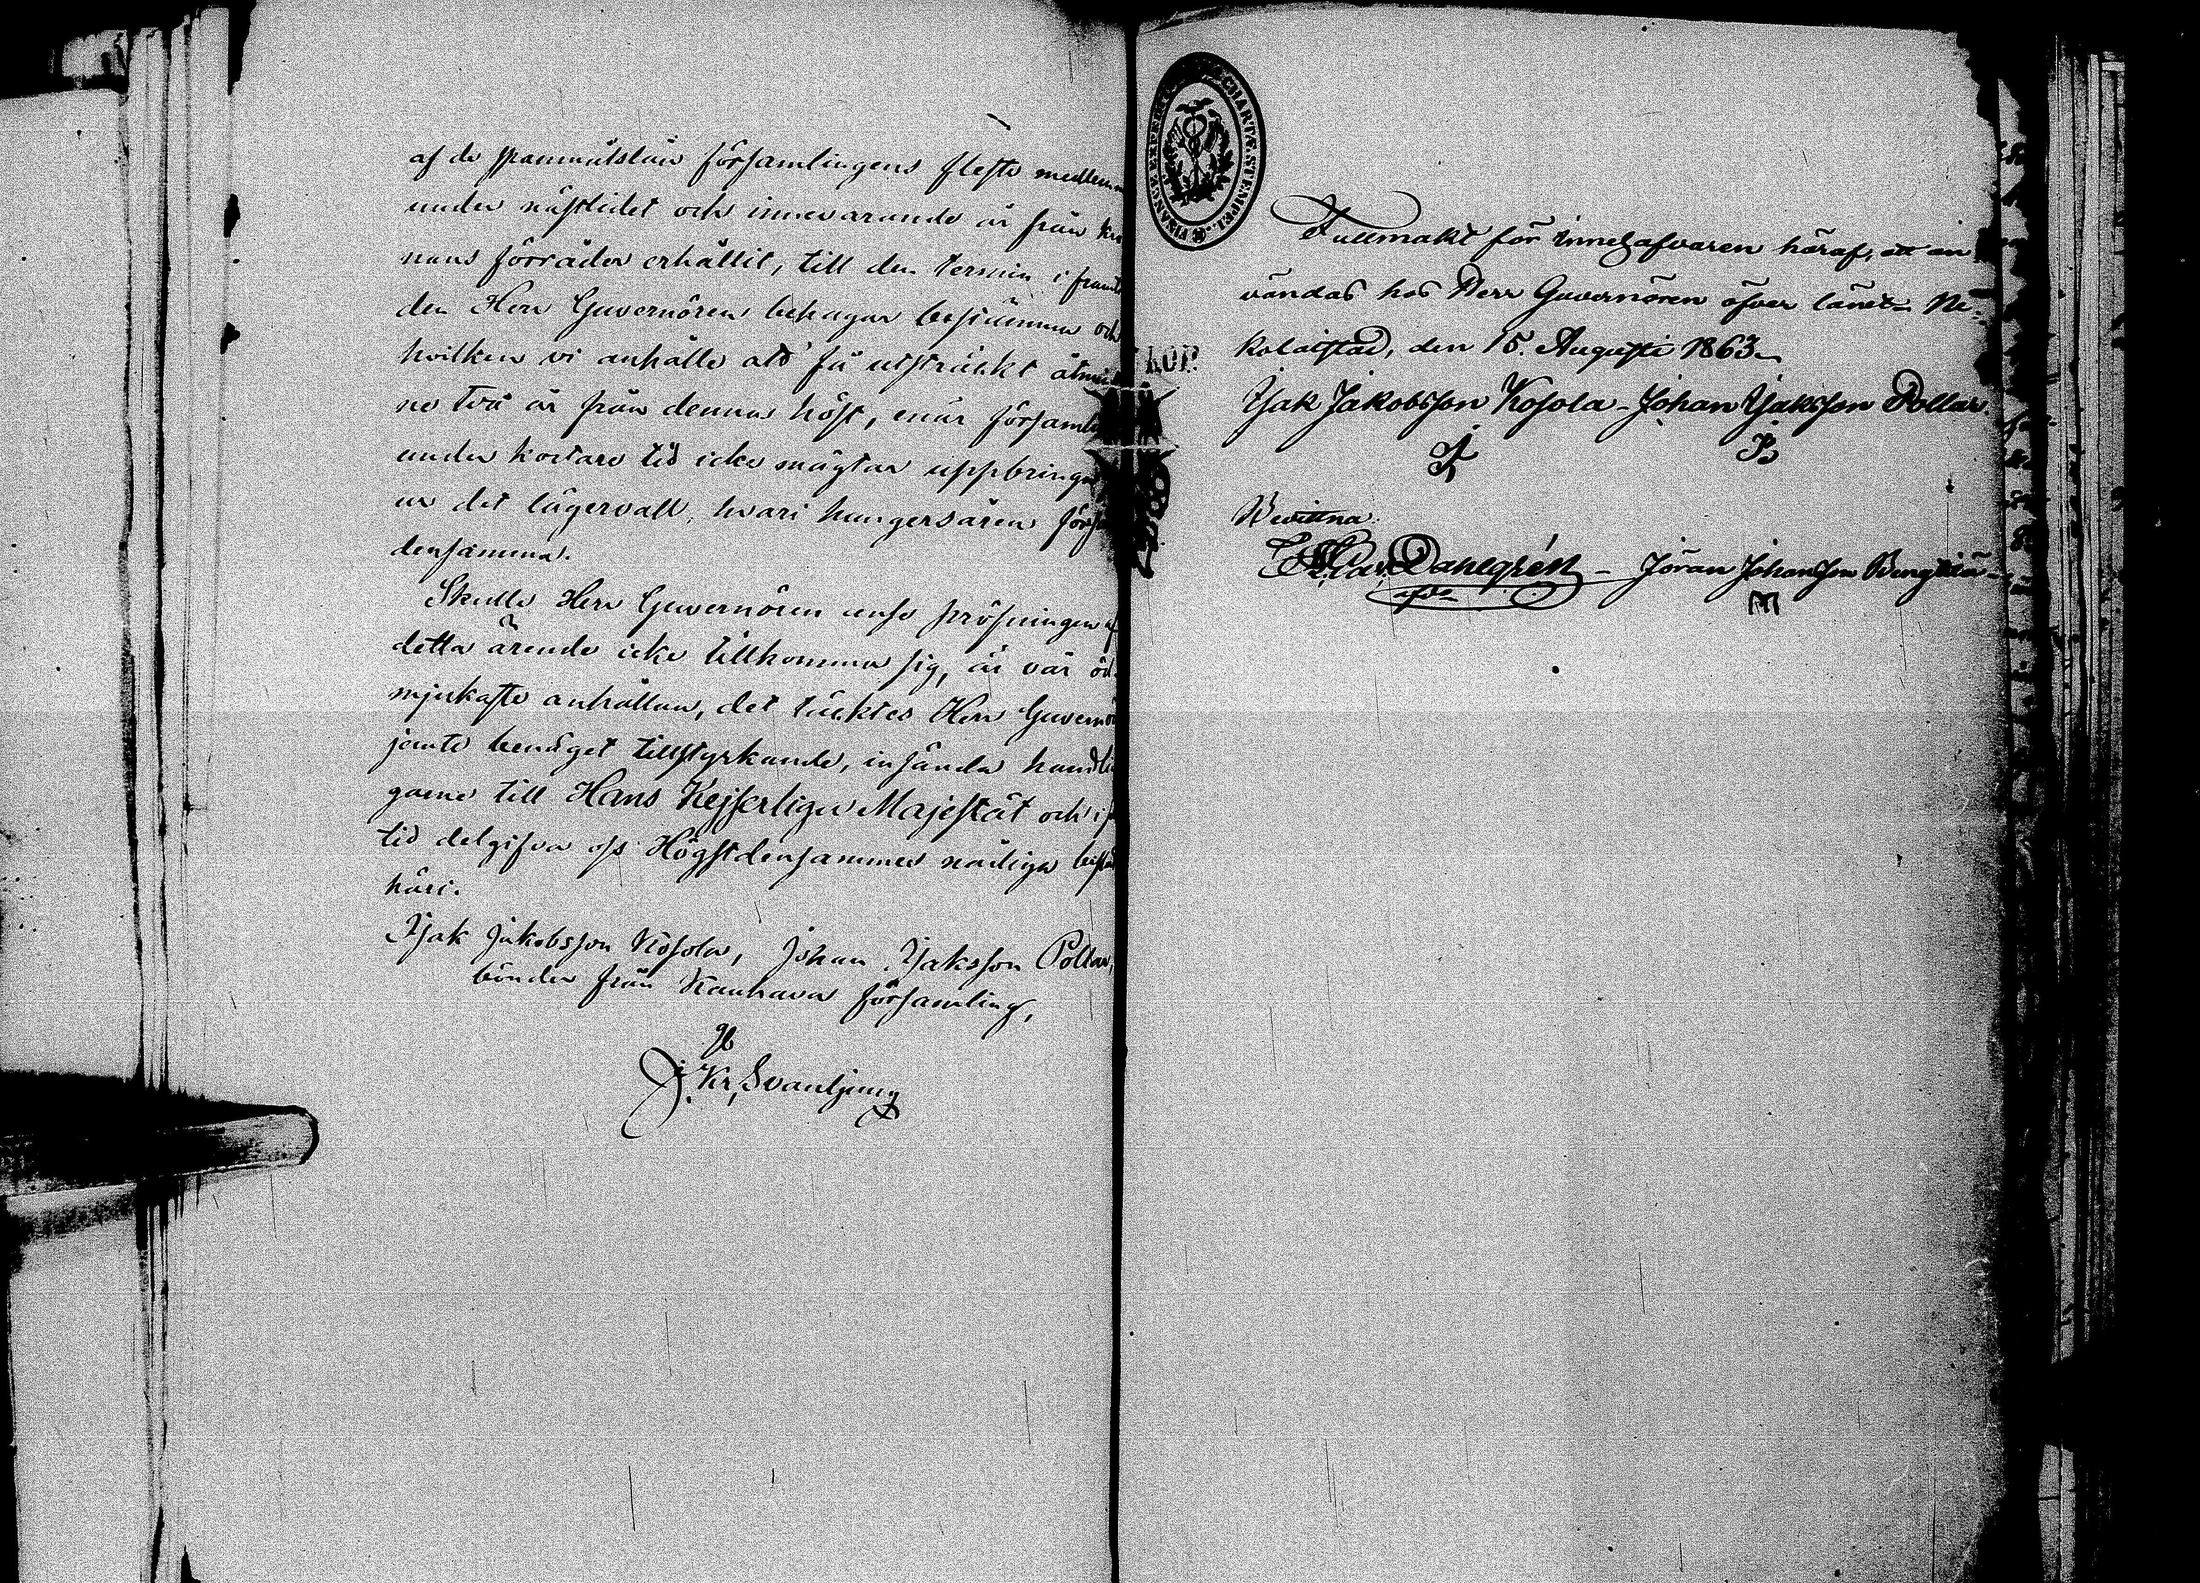 af de spannmålslån församlingens fleste medlem
under nästlidet och innevarande år från kro
nans förråder erhållit, till den termin i framti
den Herr Guvernören behagar bestämma och
hvilken vi anhålle att få utsträckt åtmin
ne två år från denna höst, enär församlin
under kortare tid icke mägtar uppbringa
ur det lägervall, hvari hungersåren förs
densamma.
Skulle Herr Guvernören anse pröfningen af
detta ärende icke tillkomma sig, är vår öd-
mjukaste anhållan, det täcktes Herr Guvernö
jemte benäget tillstyrkande, insända handlin
garne till Hans Kejserliga Majestät och i s
tid delgifva oss Högstdensammes nådiga beslu
häri.
Isak Jakobsson Kosola, Johan Isaksson Pollar,
bönder från Kauhava församling,
J. Kr. Svanljung
FINANCE EXPEDIT CHARTÆ STEMPEL.
KOP.
Fullmakt för innehafvaren häraf, att an
vändas hos Herr Guvernören öfver länet. Ni-
kolaistad, den 15. Augusti 1863.
Isak Jakobsson Kosola - Johan Isaksson Pollar.
Bevittna:
Dahlgrén - Jöran Johansson